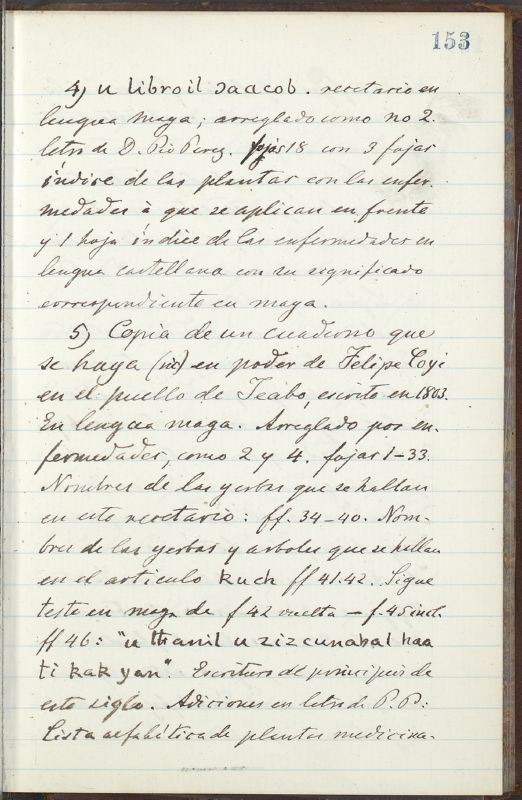 153
4) u libroil Jaacob. recetario en
lengua maya; arreglado como no 2.
letra de D. Pio Perez. fojas 18 con 3 fojas
índice de las plantas con las enfer-
medades à que se aplican en frente
y 1 hoja índice de las enfermedades en
lengua castellana con su significado
correspondiente en maya.
5) Copia de un cuaderno que
se haya (sic) en poder de Felipe Coyi
en el pueblo de Teabo, escrito en 1803.
En lengua maya. Arreglado por en-
fermedades, como 2 y 4. fojas 1-33.
Nombres de las yerbas que se hallan
en este recetario: ff. 34-40. Nom-
bres de las yerbas y arboles que se hallan
en el articulo kuch ff 41.42. Sigue
texto en maya de f 42 vuelta - f. 45 incl.
ff 46: "u thanil u ziz cunahal haa
ti kak yan". Escritura de principios de
este siglo. Adiciones en letra de P. P:
Lista alfabética de plantas medicina-